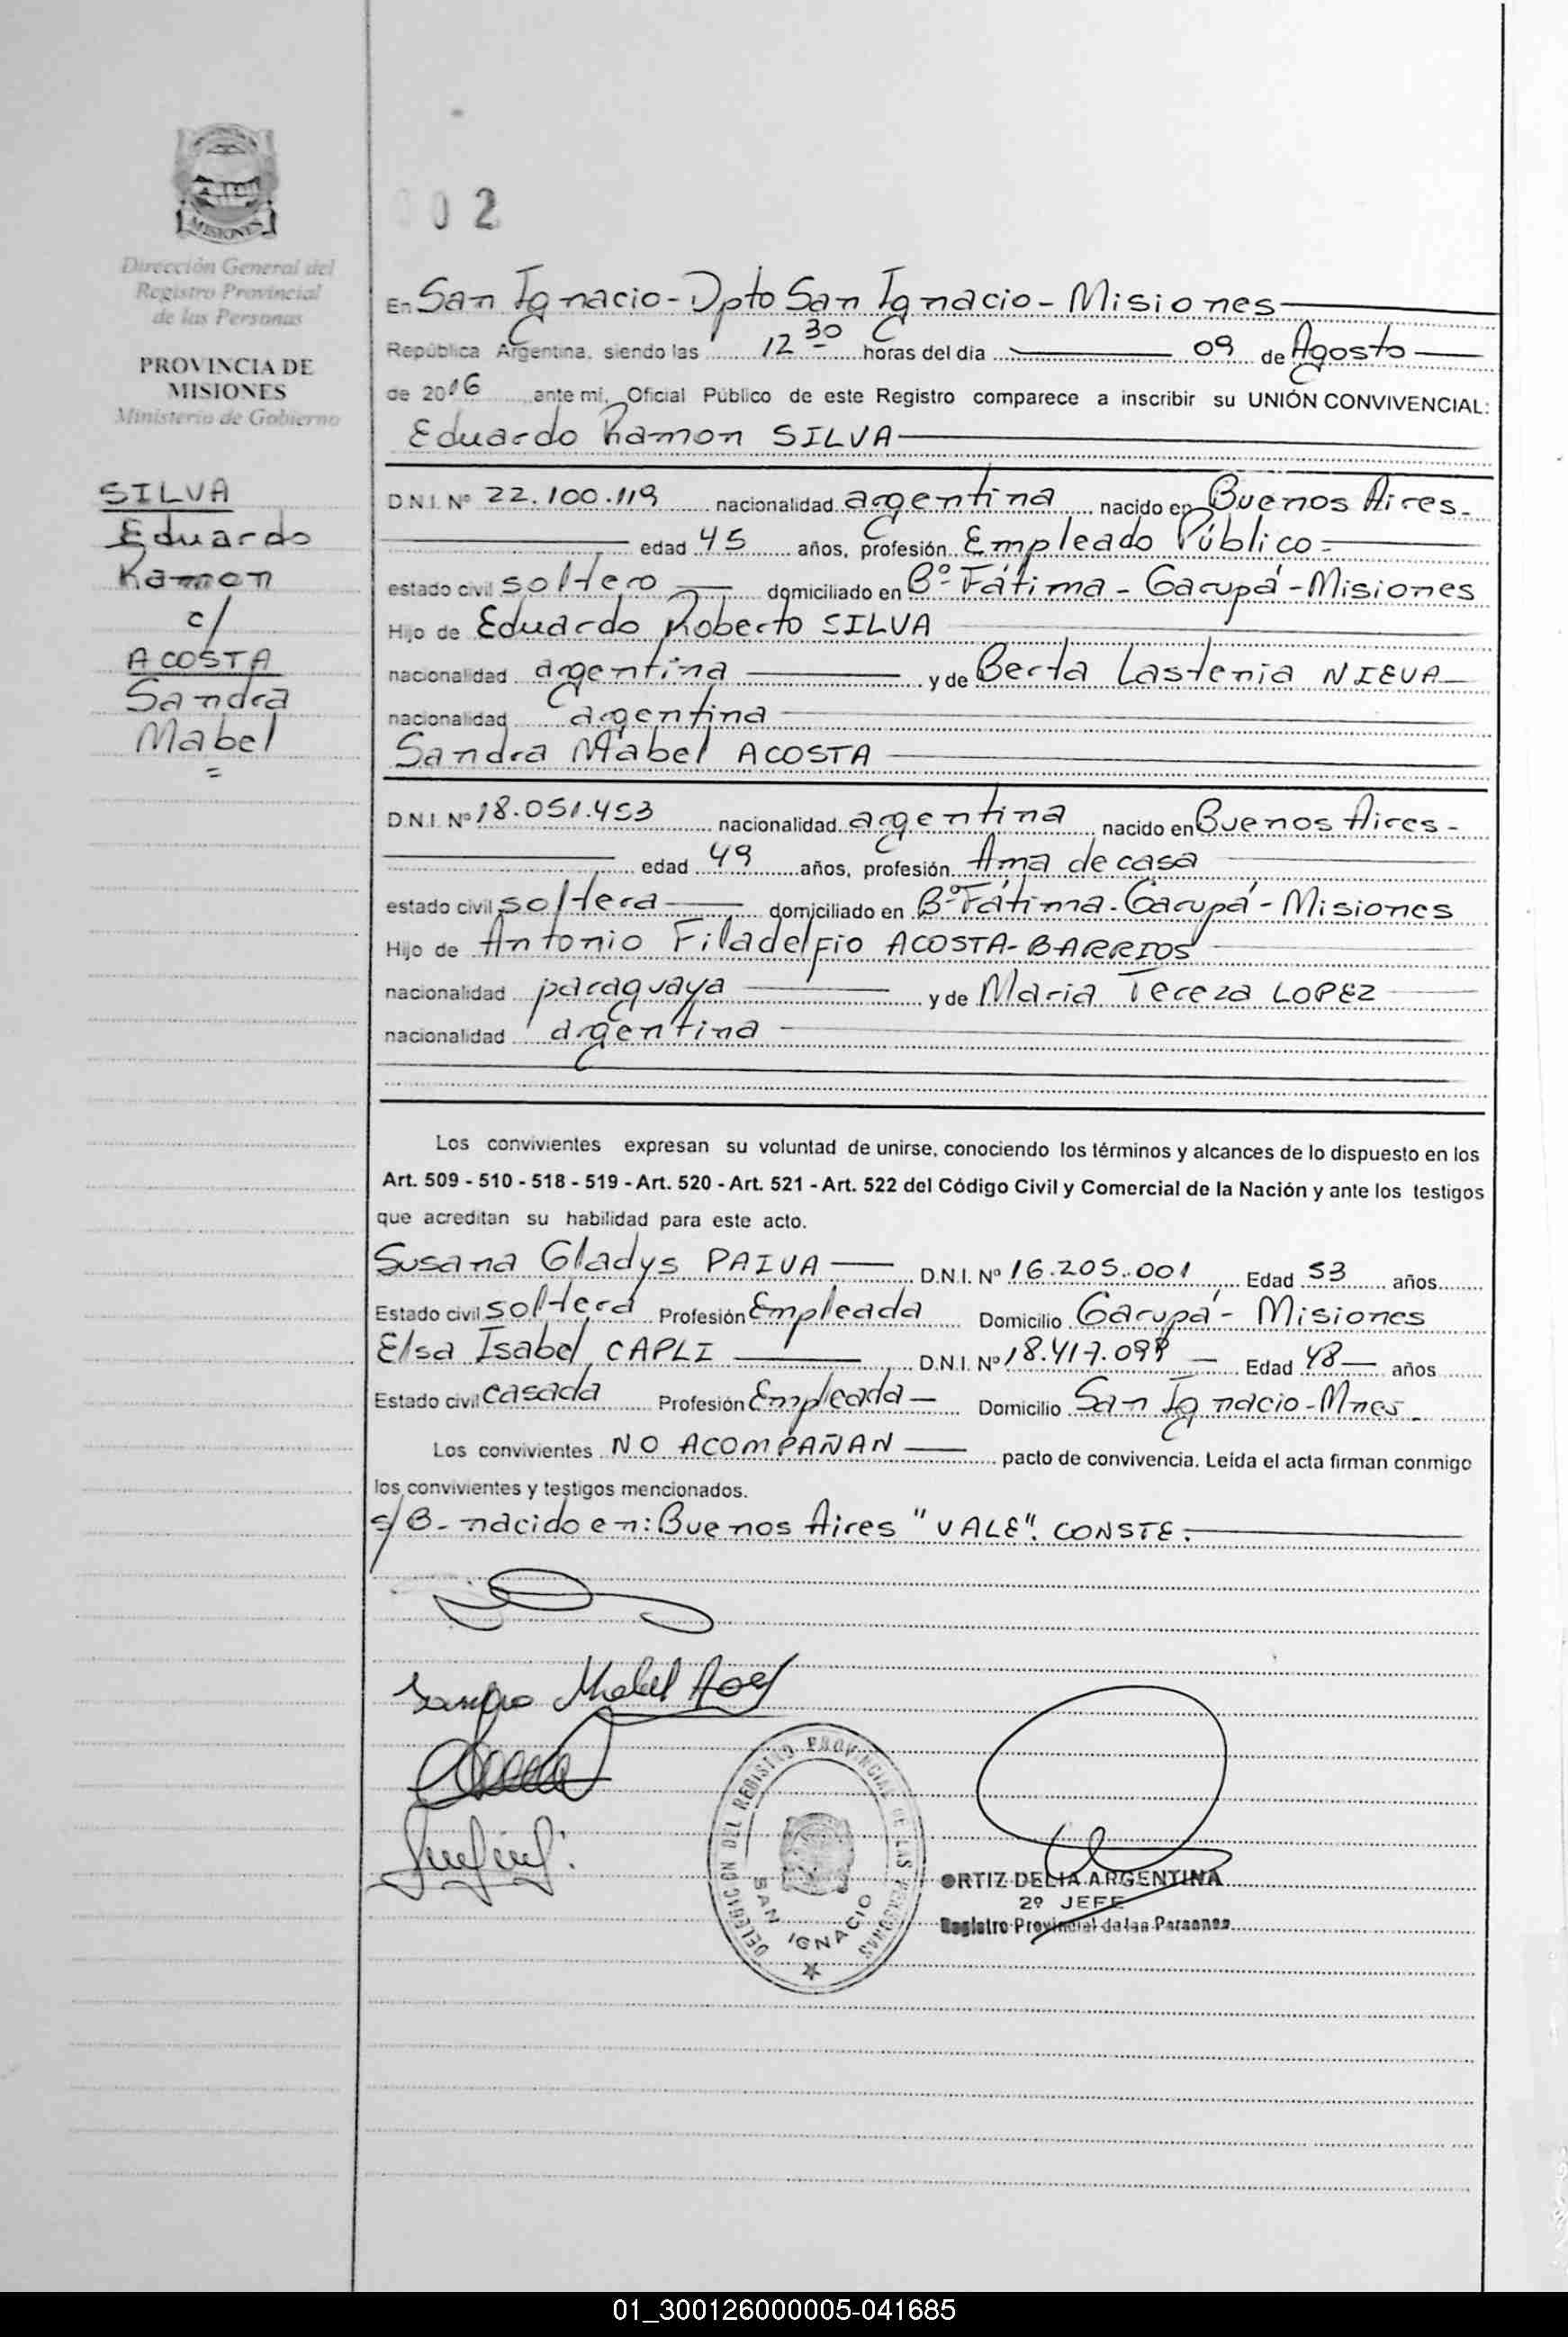 MISIONES
Dirección General del
Registro Provincial
de las Personas
PROVINCIA DE
MISIONES
Ministerio de Gobierno
SILVA
Eduardo
Ramon
c/
ACOSTA
Sandra
Mabel
=
002
En San Ignacio - Dpto San Ignacio - Misiones
República Argentina, siendo las 12 30 horas del día 09 de Agosto
de 2016 ante mi, Oficial Público de este Registro comparece a inscribir su UNIÓN CONVIVENCIAL:
Eduardo Ramon SILVA
D.N.I. Nº 22.100.119 nacionalidad argentina nacido en Buenos Aires-
edad 45 años, profesión Empleado Público -
estado civil soltero domiciliado en Bº Fátima - Garupá - Misiones
Hijo de Eduardo Roberto SILVA
nacionalidad argentina y de Berta Lastenia NIEVA
nacionalidad argentina
Sandra Mabel ACOSTA
D.N.I. Nº 18.051.453 nacionalidad argentina nacido en Buenos Aires-
edad 49 años, profesión Ama de casa
estado civil soltera domiciliado en Bº Fátima - Garupá - Misiones
Hijo de Antonio Filadelfio ACOSTA-BARRIOS
nacionalidad paraguaya y de Maria Tereza LOPEZ
nacionalidad argentina
Los convivientes expresan su voluntad de unirse, conociendo los términos y alcances de lo dispuesto en los
Art. 509 - 510 - 518 - 519 - Art. 520 - Art. 521 - Art. 522 del Código Civil y Comercial de la Nación y ante los testigos
que acreditan su habilidad para este acto.
Susana Gladys PAIVA D.N.I. Nº 16.205.001 Edad 53 años
Estado civil soltera Profesión Empleada Domicilio Garupá - Misiones
Elsa Isabel CAPLI D.N.I. Nº 18.417.099 Edad 48 años
Estado civil casada Profesión Empleada Domicilio San Ignacio - Mnes.
Los convivientes NO ACOMPAÑAN pacto de convivencia. Leída el acta firman conmigo
los convivientes y testigos mencionados.
s/B- nacido en: Buenos Aires "VALE". CONSTE.
Sandra Mabel
DELEGACION DEL REGISTRO PROVINCIAL DE LAS PERSONAS
SAN IGNACIO
ORTIZ DELIA ARGENTINA
2º JEFE
Registro Provincial de las Personas
01_300126000005-041685